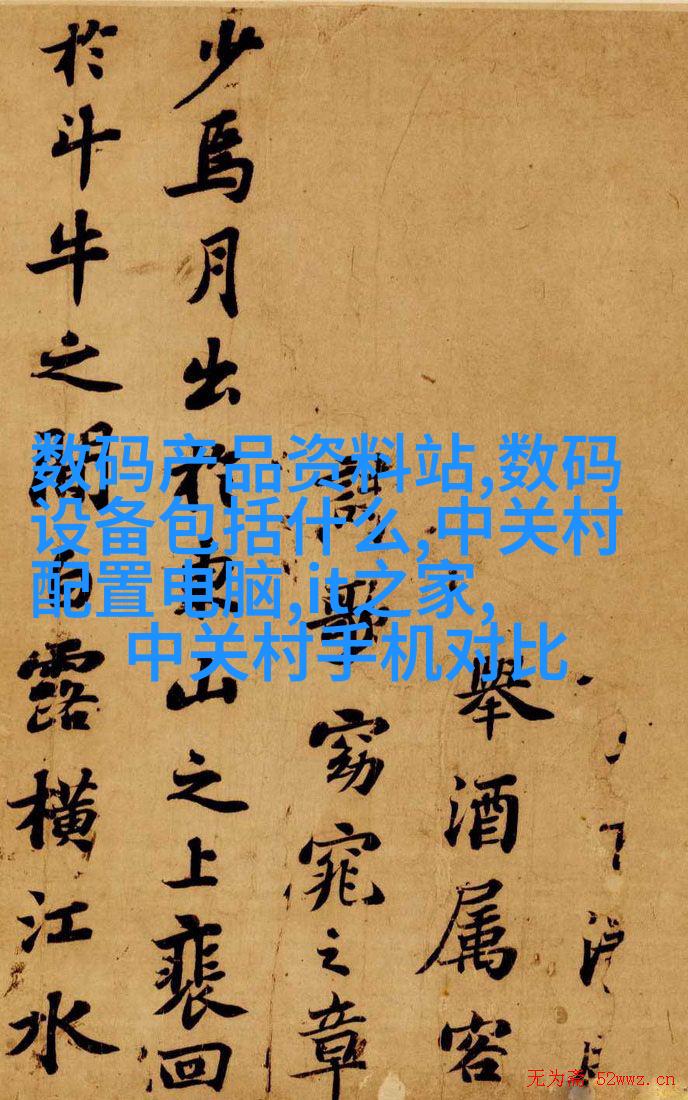 舉酒属客
歌窈窕之章
少焉月出於東山之上裴回
於斗牛之間白露橫江水
数码产品资料站,数码
设备包括什么,中关村
配置电脑,it之家,
中关村手机对比
无为斋 52wwz.cn